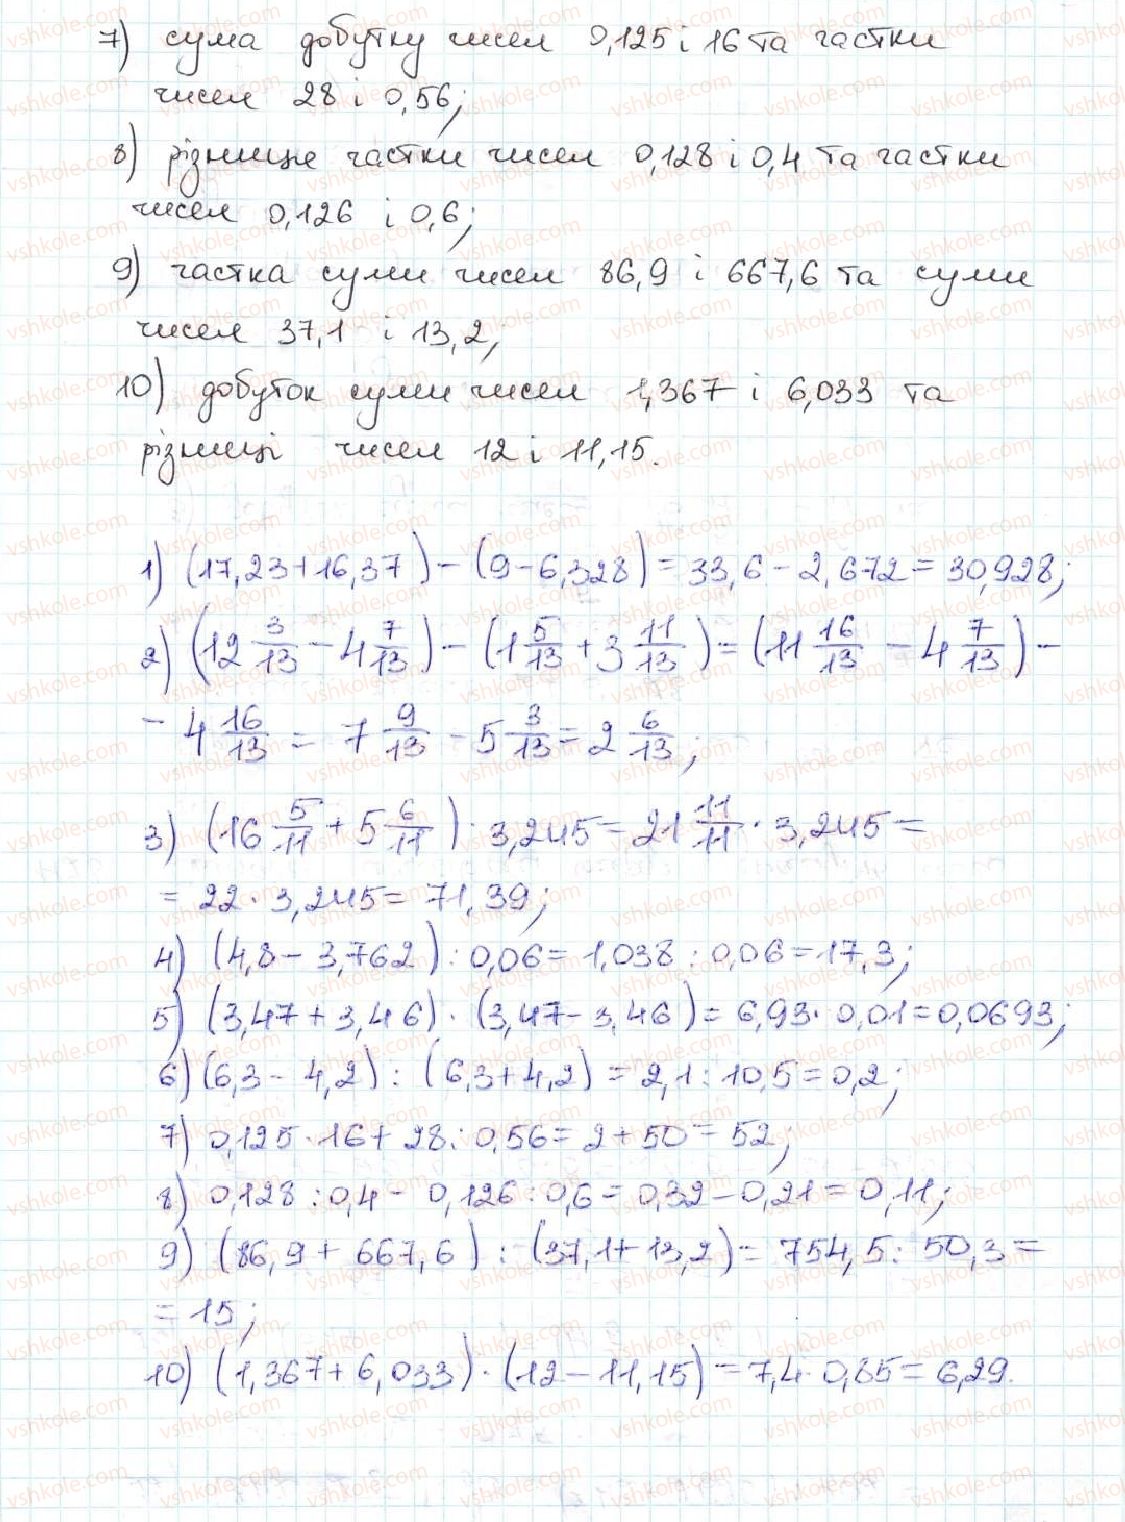 7) сума добутку чисел 0,125 і 16 та частки
чисел 28 і 0,56;
8) різниця частки чисел 0,128 і 0,4 та частки
чисел 0,126 і 0,6;
9) частка суми чисел 86,9 і 667,6 та суми
чисел 37,1 і 13,2;
10) добуток суми чисел 1,367 і 6,033 та
різниці чисел 12 і 11,15.
1) (17,23+16,37)-(9-6,328)=33,6-2,672=30,928;
2) (12 3/13 - 4 7/13) - (1 5/13 + 3 11/13) = (11 16/13 - 4 7/13) -
- 4 16/13 = 7 9/13 - 5 3/13 = 2 6/13;
3) (16 5/11 + 5 6/11) · 3,245 = 21 11/11 · 3,245 =
= 22 · 3,245 = 71,39;
4) (4,8 - 3,762) : 0,06 = 1,038 : 0,06 = 17,3;
5) (3,47 + 3,46) · (3,47 - 3,46) = 6,93 · 0,01 = 0,0693;
6) (6,3 - 4,2) : (6,3 + 4,2) = 2,1 : 10,5 = 0,2;
7) 0,125 · 16 + 28 : 0,56 = 2 + 50 = 52;
8) 0,128 : 0,4 - 0,126 : 0,6 = 0,32 - 0,21 = 0,11;
9) (86,9 + 667,6) : (37,1 + 13,2) = 754,5 : 50,3 =
= 15;
10) (1,367 + 6,033) · (12 - 11,15) = 7,4 · 0,85 = 6,29.